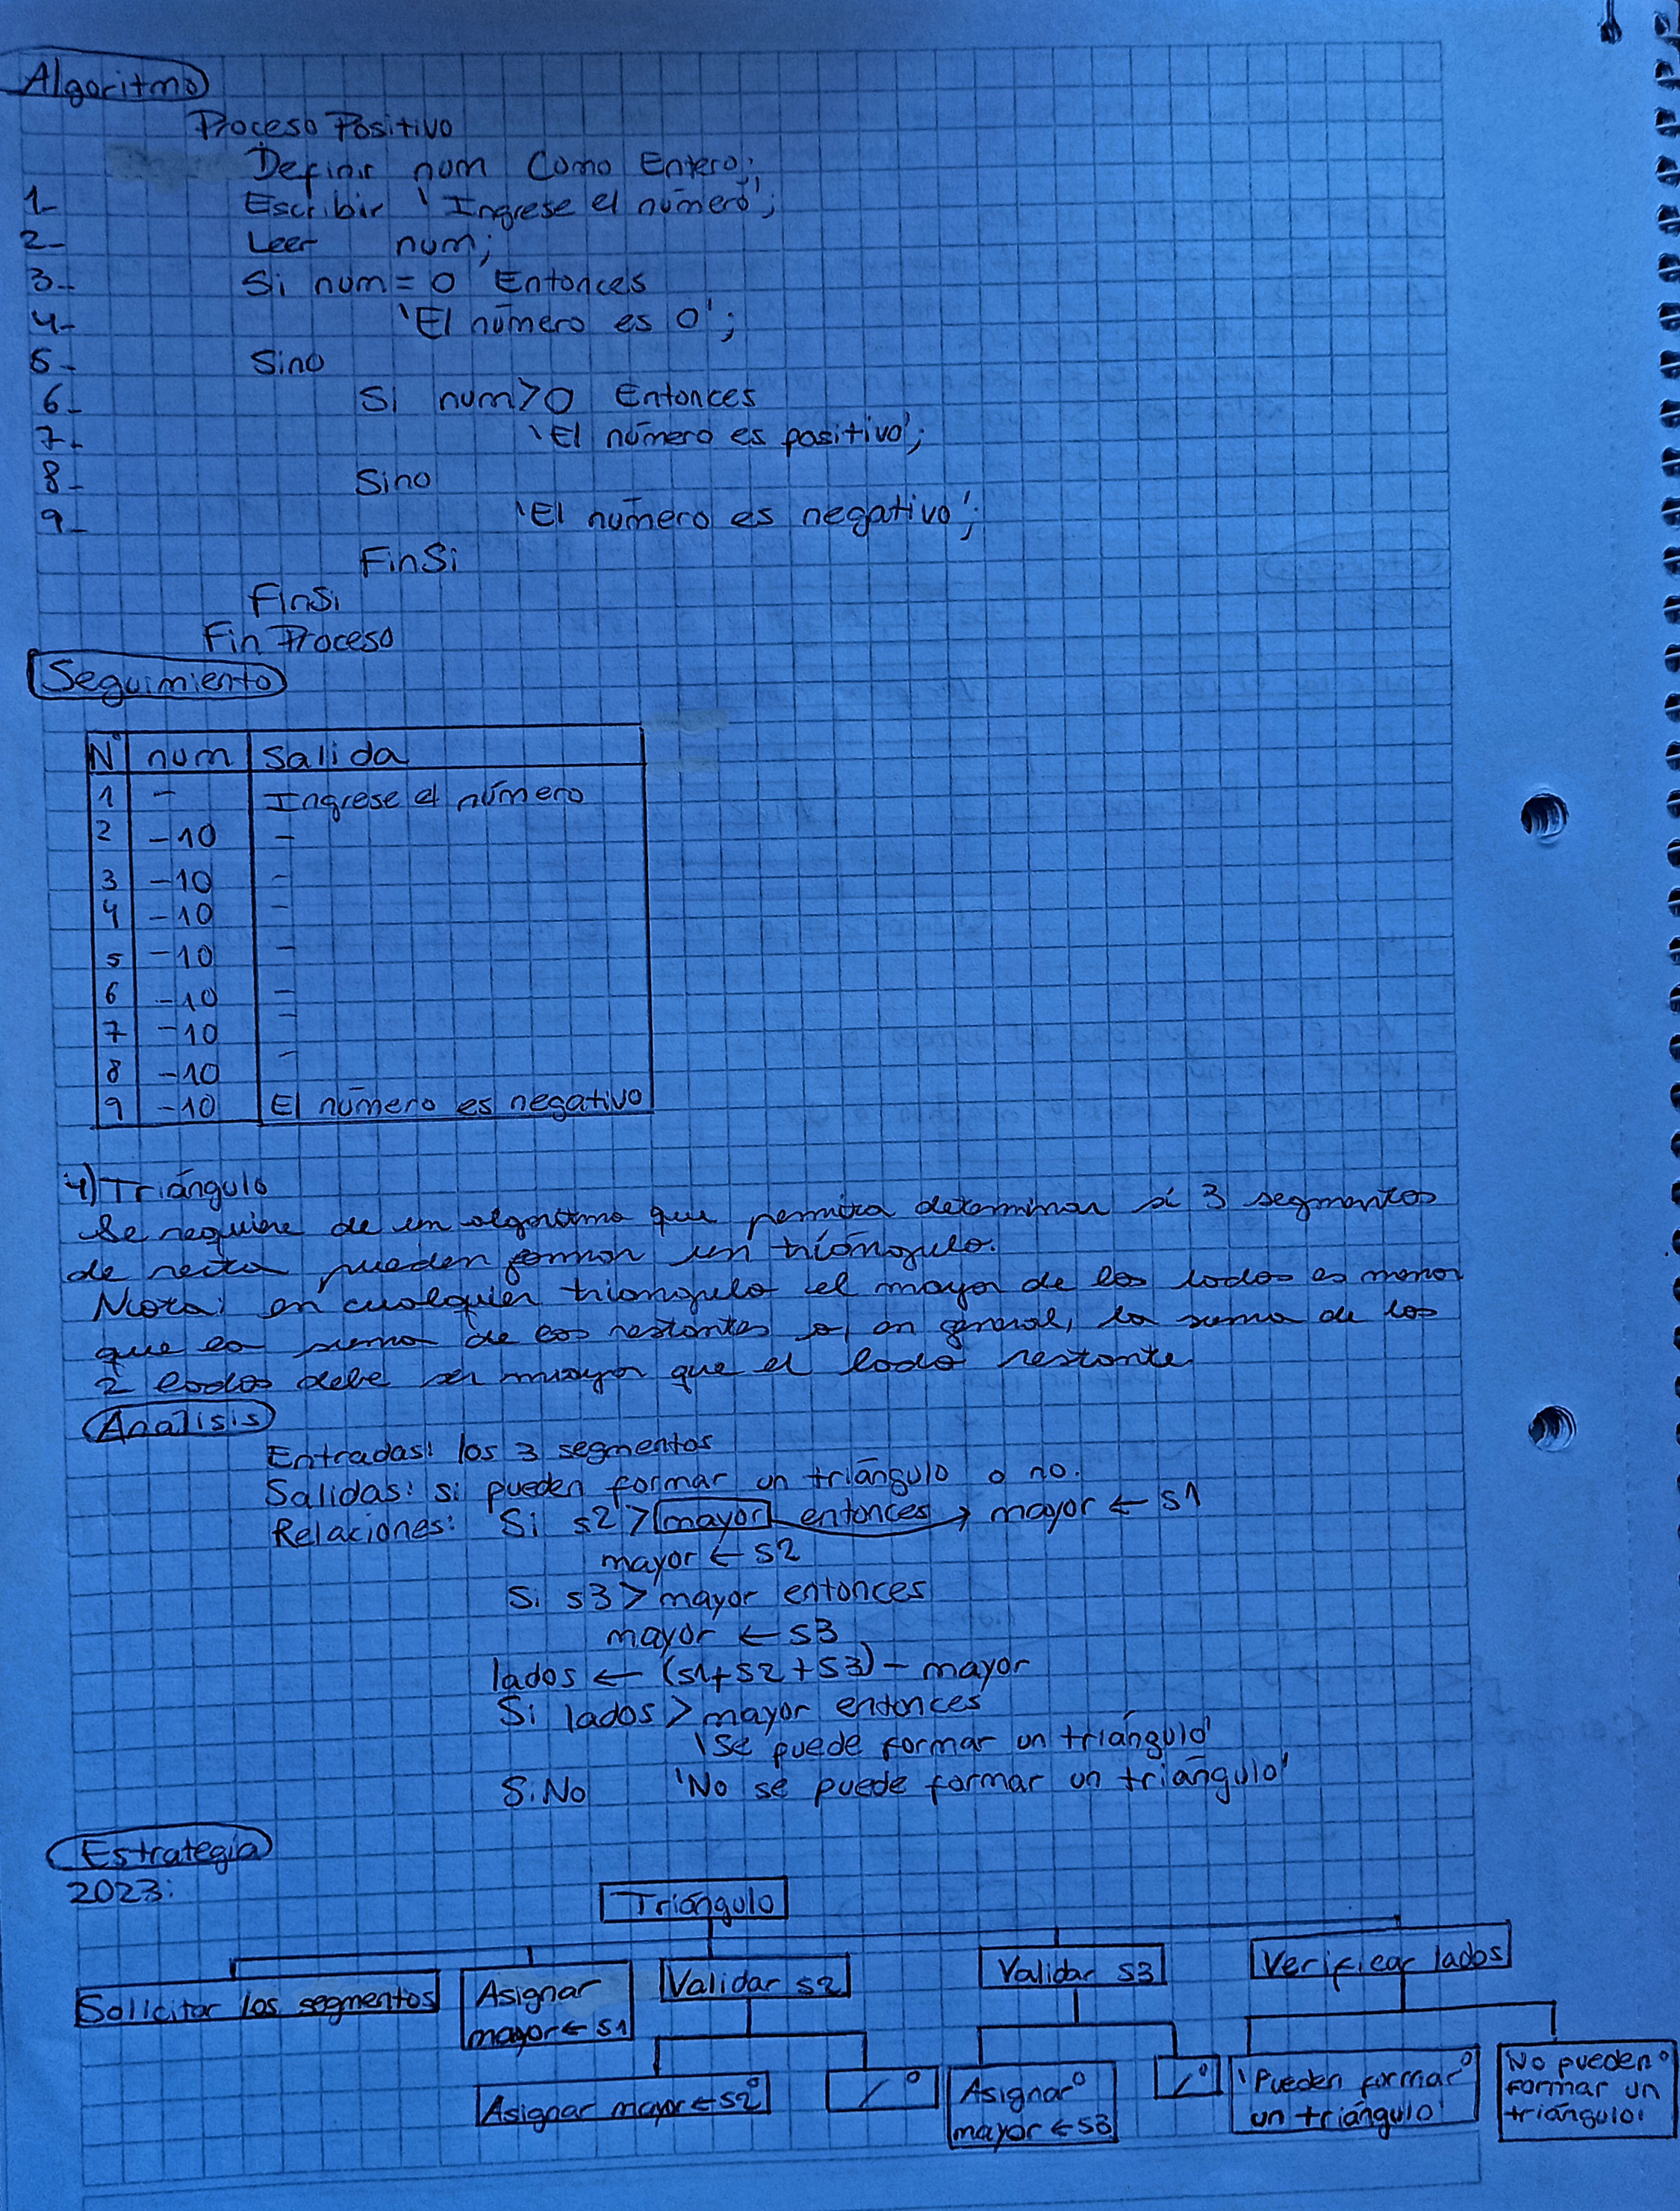 Algoritmo
Proceso Positivo
Definir num Como Entero;
1- Escribir 'Ingrese el número';
2- Leer num;
3- Si num = 0 Entonces
4- 'El número es 0';
5- Sino
6- Si num > 0 Entonces
7- 'El número es positivo';
8- Sino
9- 'El número es negativo';
FinSi
FinSi
Fin Proceso
Seguimiento
N° num Salida
1 - Ingrese el número
2 -10 -
3 -10 -
4 -10 -
5 -10 -
6 -10 -
7 -10 -
8 -10 -
9 -10 El número es negativo
4) Triángulo
Se requiere de un algoritmo que permita determinar si 3 segmentos
de recta pueden formar un triángulo.
Nota: en cualquier triangulo el mayor de los lados es menor
que la suma de los restantes o, en general, la suma de los
2 lados debe ser mayor que el lado restante.
Analisis
Entradas: los 3 segmentos
Salidas: si pueden formar un triángulo o no.
Relaciones: Si s2 > mayor entonces → mayor ← s1
mayor ← s2
Si s3 > mayor entonces
mayor ← s3
lados ← (s1+s2+s3) - mayor
Si lados > mayor entonces
'Se puede formar un triángulo'
SiNo 'No se puede formar un triángulo'
Estrategia
2023:
Triángulo
Solicitar los segmentos Asignar mayor ← s1 Validar s2 Validar s3 Verificar lados
Asignar mayor ← s2° /° Asignar° mayor ← s3 /° 'Pueden formar° un triángulo' No pueden° formar un triángulo'